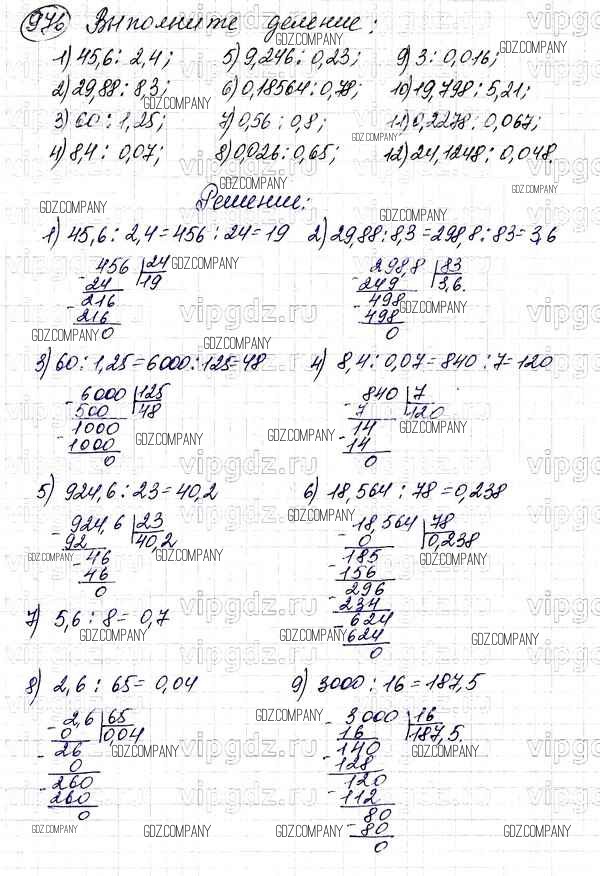 976 Выполните деление:
1) 45,6 : 2,4; 5) 9,246 : 0,23; 9) 3 : 0,016;
2) 29,88 : 8,3; 6) 0,18564 : 0,78; 10) 19,798 : 5,21;
3) 60 : 1,25; 7) 0,56 : 0,8; 11) 0,2278 : 0,067;
4) 8,4 : 0,07; 8) 0,026 : 0,65; 12) 24,1248 : 0,048.
Решение:
1) 45,6 : 2,4 = 456 : 24 = 19 2) 29,88 : 8,3 = 298,8 : 83 = 3,6
456 24 298,8 83
24 19 249 3,6.
216 498
216 498
0 0
3) 60 : 1,25 = 6000 : 125 = 48 4) 8,4 : 0,07 = 840 : 7 = 120
6000 125 840 7
500 48 7 120
1000 14
1000 14
0 0
5) 924,6 : 23 = 40,2 6) 18,564 : 78 = 0,238
924,6 23 18,564 78
92 40,2 0 0,238
46 185
46 156
0 296
234
624
624
0
7) 5,6 : 8 = 0,7
8) 2,6 : 65 = 0,04 9) 3000 : 16 = 187,5
2,6 65 3000 16
0 0,04 16 187,5.
26 140
0 128
260 120
260 112
0 80
80
0
GDZ.COMPANY
vipgdz.ru